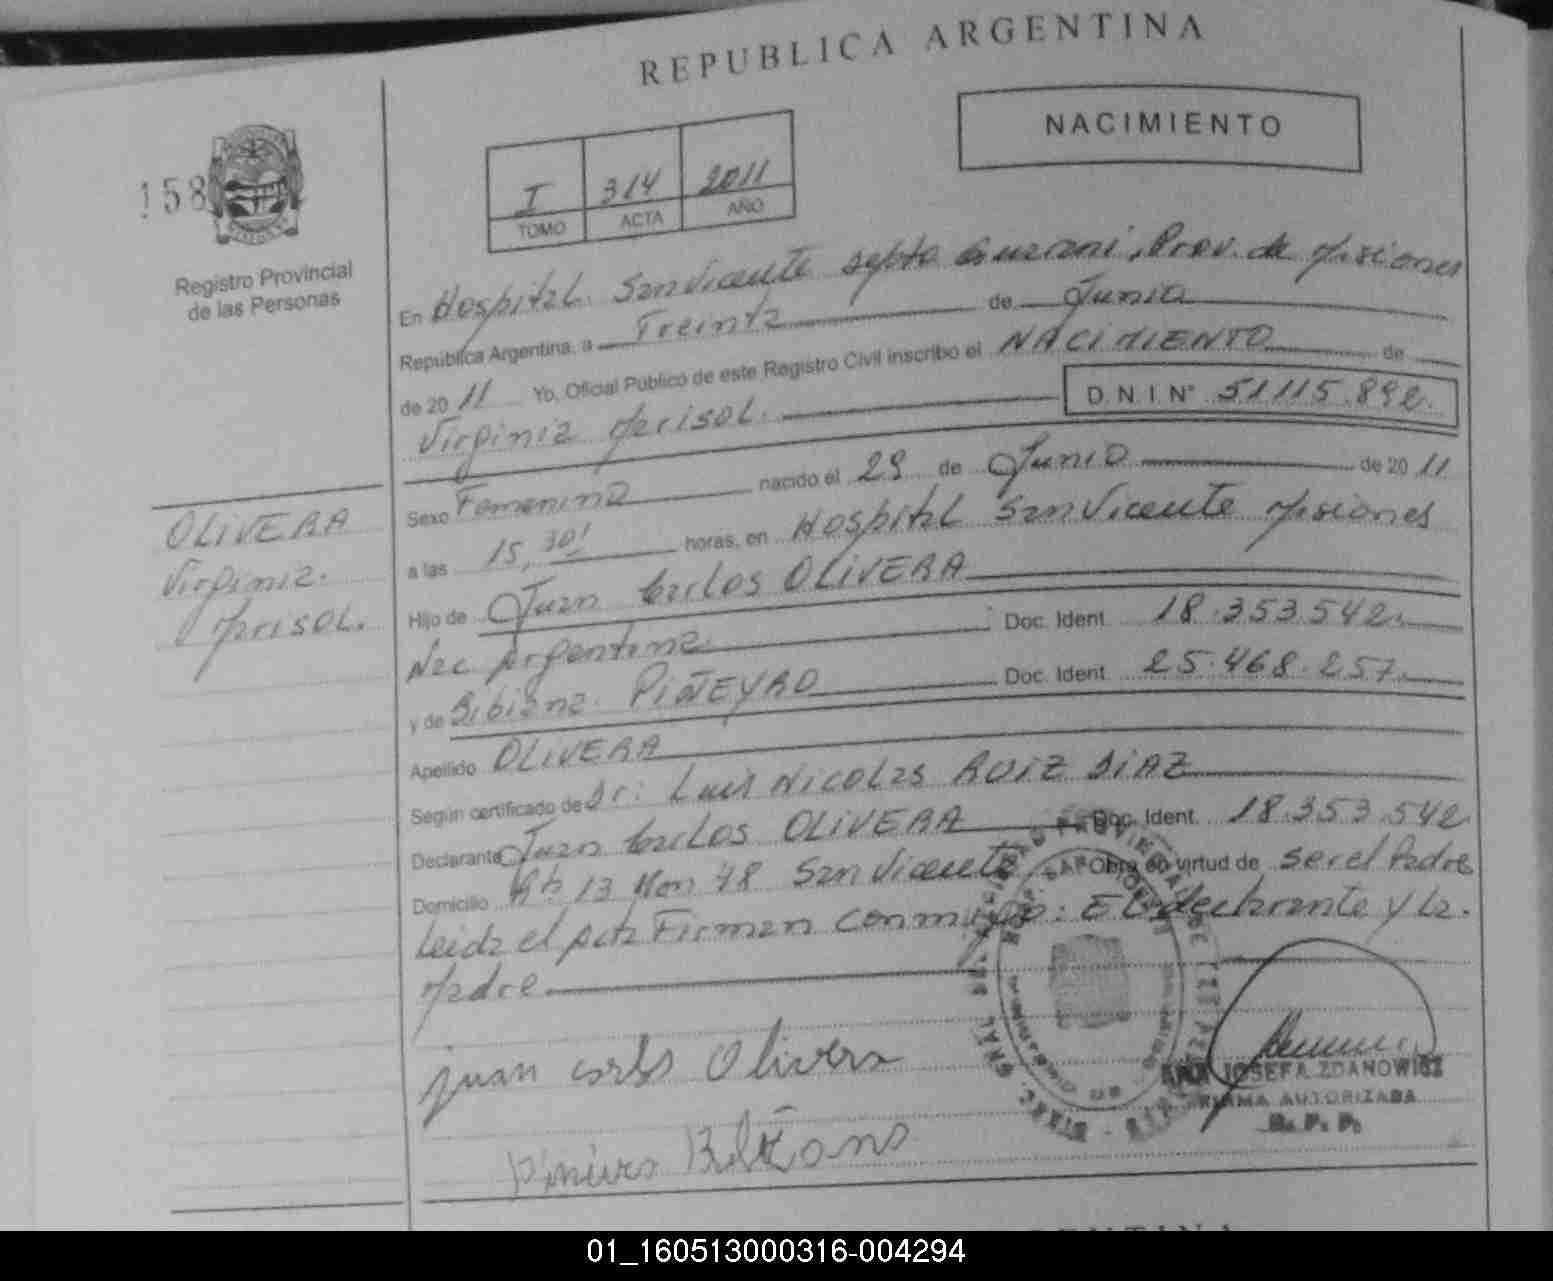 REPUBLICA ARGENTINA
NACIMIENTO
158
I 314 2011
TOMO ACTA AÑO
Registro Provincial
de las Personas
En Hospital San Vicente Depto Guarani, Prov. de Misiones
República Argentina, a Treinta de Junio
de 2011 Yo, Oficial Público de este Registro Civil inscribo el NACIMIENTO de
Virginia Marisol. D.N.I. N° 51.115.892.
Sexo Femenino nacido el 29 de Junio de 2011
a las 15,30' horas, en Hospital San Vicente Misiones
Hijo de Juan Carlos OLIVERA
Nac Argentina. Doc. Ident. 18.353.542.
y de Bibiana PIÑEYRO Doc. Ident. 25.468.257.
Apellido OLIVERA
Según certificado de Dr: Luis Nicolas RUIZ DIAZ
Declarante Juan Carlos OLIVERA Doc. Ident. 18.353.542
Domicilio 13 Mon 48 San Vicente Obra en virtud de ser el Padre
Leida el Acta Firman conmigo: El declarante y la
Madre
OLIVERA
Virginia
Marisol.
juan carlos Olivera
JOSEFA ZDANOWICZ
FIRMA AUTORIZADA
R. P. P.
01_160513000316-004294